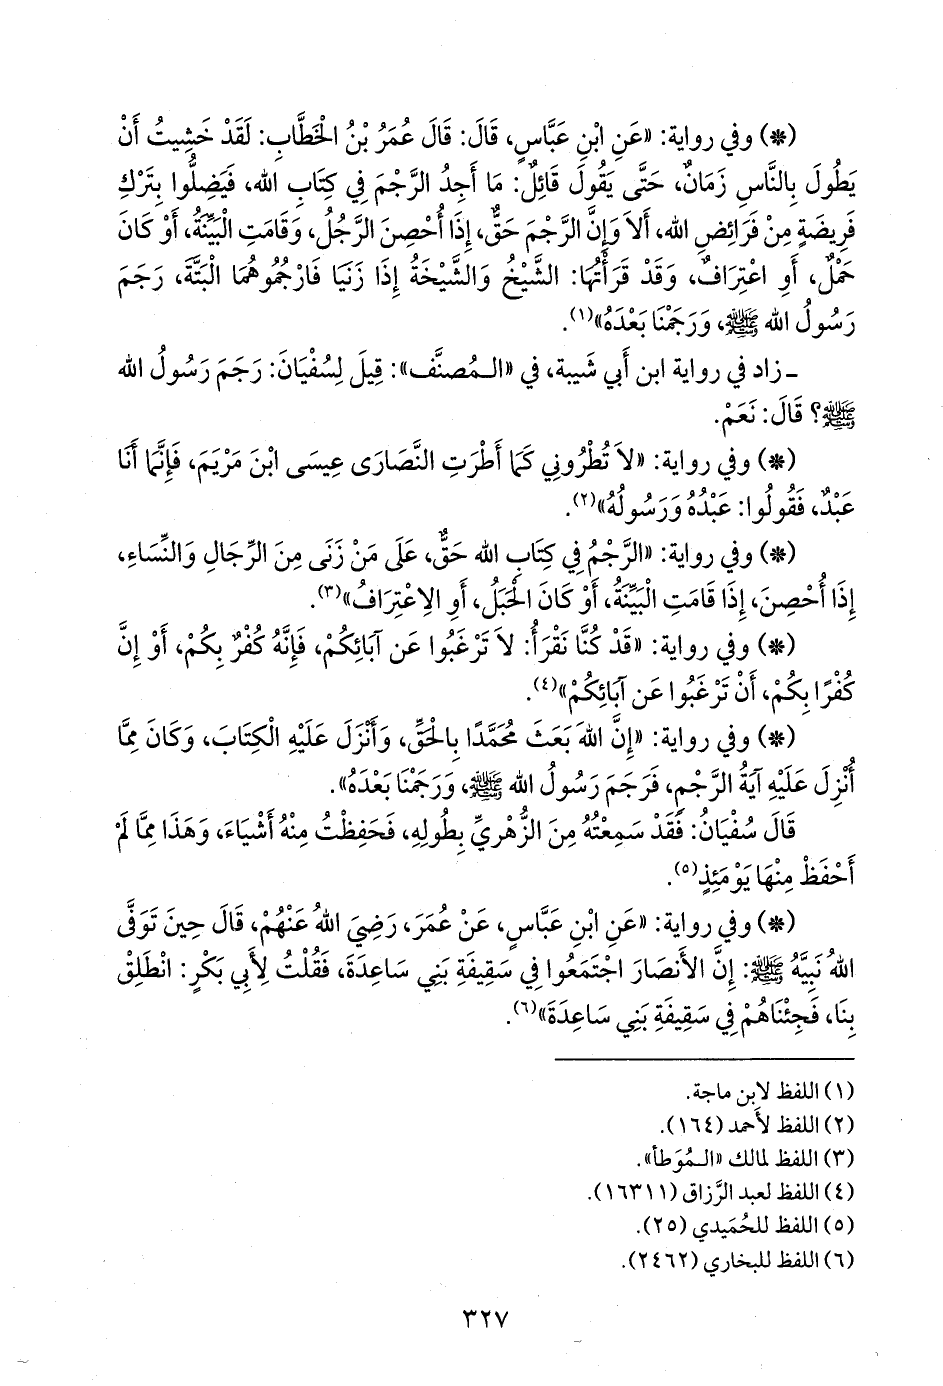 (*) وفي رواية: «عَنِ ابْنِ عَبَّاسٍ، قَالَ: قَالَ عُمَرُ بْنُ الْخَطَّابِ: لَقَدْ خَشِيتُ أَنْ
يَطُولَ بِالنَّاسِ زَمَانٌ، حَتَّى يَقُولَ قَائِلٌ: مَا أَجِدُ الرَّجْمَ فِي كِتَابِ الله، فَيَضِلُّوا بِتَرْكِ
فَرِيضَةٍ مِنْ فَرَائِضِ الله، أَلاَ وَإِنَّ الرَّجْمَ حَقٌّ، إِذَا أُحْصِنَ الرَّجُلُ، وَقَامَتِ الْبَيِّنَةُ، أَوْ كَانَ
حَمْلٌ، أَوِ اعْتِرَافٌ، وَقَدْ قَرَأْتُهَا: الشَّيْخُ وَالشَّيْخَةُ إِذَا زَنَيَا فَارْجُمُوهُمَا الْبَتَّةَ، رَجَمَ
رَسُولُ الله ﷺ، وَرَجَمْنَا بَعْدَهُ»(١).
ـ زاد في رواية ابن أبي شَيبة، في «الـمُصنَّف»: قِيلَ لِسُفْيَانَ: رَجَمَ رَسُولُ الله
ﷺ؟ قَالَ: نَعَمْ.
(*) وفي رواية: «لاَ تُطْرُونِي كَمَا أَطْرَتِ النَّصَارَى عِيسَى ابْنَ مَرْيَمَ، فَإِنَّمَا أَنَا
عَبْدٌ، فَقُولُوا: عَبْدُهُ وَرَسُولُهُ»(٢).
(*) وفي رواية: «الرَّجْمُ فِي كِتَابِ الله حَقٌّ، عَلَى مَنْ زَنَى مِنَ الرِّجَالِ وَالنِّسَاءِ،
إِذَا أُحْصِنَ، إِذَا قَامَتِ الْبَيِّنَةُ، أَوْ كَانَ الْحَبَلُ، أَوِ الاِعْتِرَافُ»(٣).
(*) وفي رواية: «قَدْ كُنَّا نَقْرَأُ: لاَ تَرْغَبُوا عَن آبَائِكُمْ، فَإِنَّهُ كُفْرٌ بِكُمْ، أَوْ إِنَّ
كُفْرًا بِكُمْ، أَنْ تَرْغَبُوا عَن آبَائِكُمْ»(٤).
(*) وفي رواية: «إِنَّ اللهَ بَعَثَ مُحَمَّدًا بِالْحَقِّ، وَأَنْزَلَ عَلَيْهِ الْكِتَابَ، وَكَانَ مِمَّا
أُنْزِلَ عَلَيْهِ آيَةُ الرَّجْمِ، فَرَجَمَ رَسُولُ الله ﷺ، وَرَجَمْنَا بَعْدَهُ».
قَالَ سُفْيَانُ: فَقَدْ سَمِعْتُهُ مِنَ الزُّهْرِيِّ بِطُولِهِ، فَحَفِظْتُ مِنْهُ أَشْيَاءَ، وَهَذَا مِمَّا لَمْ
أَحْفَظْ مِنْهَا يَوْمَئِذٍ(٥).
(*) وفي رواية: «عَنِ ابْنِ عَبَّاسٍ، عَنْ عُمَرَ، رَضِيَ اللهُ عَنْهُمْ، قَالَ حِينَ تَوَفَّى
اللهُ نَبِيَّهُ ﷺ: إِنَّ الأَنْصَارَ اجْتَمَعُوا فِي سَقِيفَةِ بَنِي سَاعِدَةَ، فَقُلْتُ لِأَبِي بَكْرٍ: انْطَلِقْ
بِنَا، فَجِئْنَاهُمْ فِي سَقِيفَةِ بَنِي سَاعِدَةَ»(٦).
(١) اللفظ لابن ماجة.
(٢) اللفظ لأَحمد (١٦٤).
(٣) اللفظ لمالك «الـمُوَطأ».
(٤) اللفظ لعبد الرَّزاق (١٦٣١١).
(٥) اللفظ للحُمَيدي (٢٥).
(٦) اللفظ للبخاري (٢٤٦٢).
٣٢٧